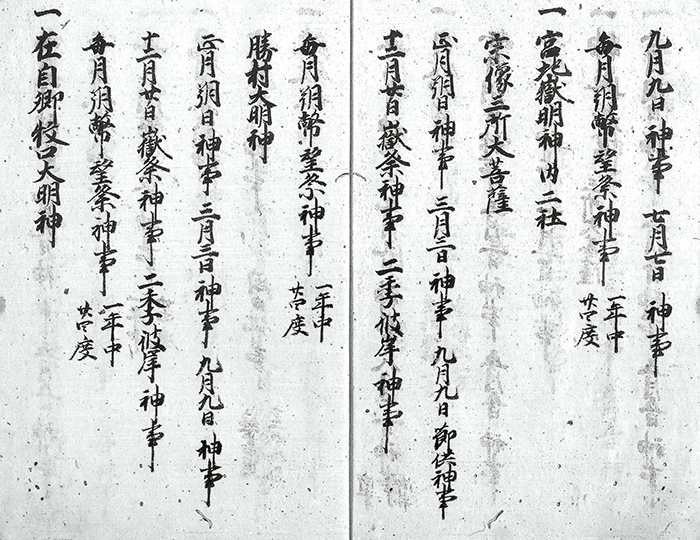 九月九日神事 七月七日 神事
毎月朔幣望祭神事 一年中
廿四度
一 宮地嶽明神内二社
宗像三所大菩薩
正月朔日神事 三月三日神事 九月九日 節供神事
十二月廿日嶽祭神事 二季彼岸神事
毎月朔幣望祭神事 一年中
廿四度
勝村大明神
正月朔日神事 三月三日神事 九月九日 神事
十二月廿日嶽祭神事 二季彼岸神事
毎月朔幣望祭神事 一年中
廿四度
一 在自郷牧口大明神